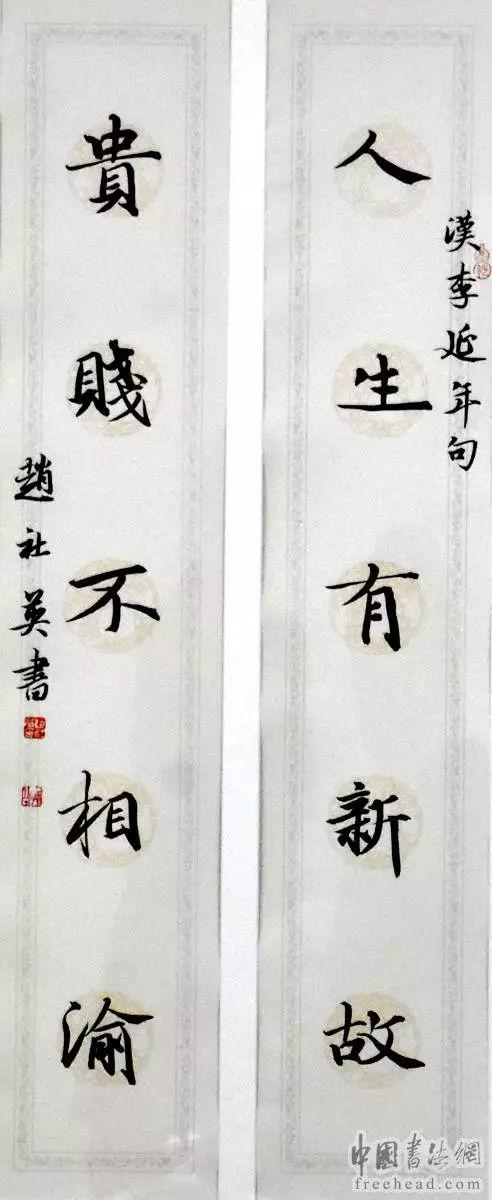 漢李延年句
人生有新故
貴賤不相渝
趙社英書
中國書法網
freehead.com